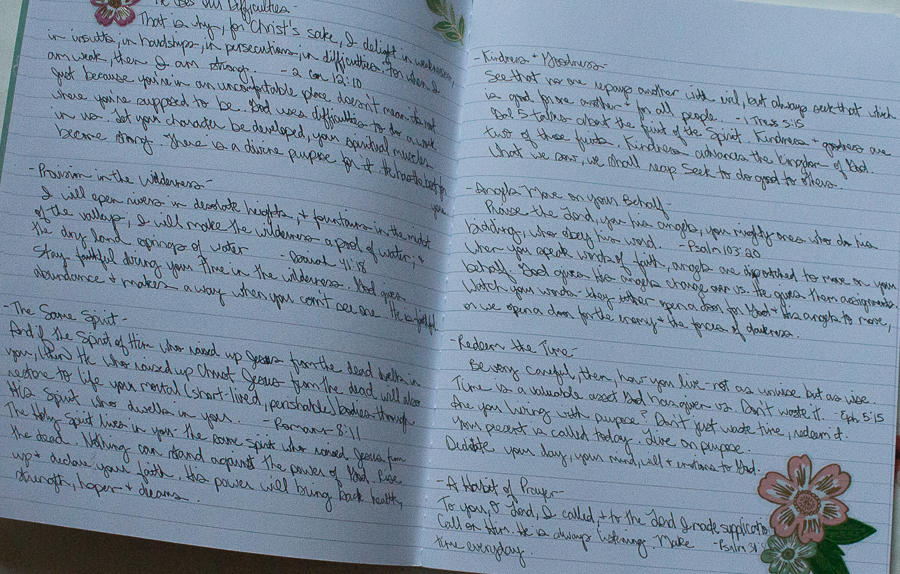 He Uses Our Difficulties-
That is why, for Christ's sake, I delight in weaknesses,
in insults, in hardships, in persecutions, in difficulties, for when I
am weak, then I am strong. -2 Cor 12:10
Just because you're in an uncomfortable place doesn't mean its not
where you're supposed to be. God uses difficulties to do a work
in us. Let your character be developed, your spiritual muscles
become strong. There is a divine purpose for it. He has the best for
you.
-Provision in the Wilderness-
I will open rivers in desolate heights, + fountains in the midst
of the valleys, I will make the wilderness a pool of water, +
the dry land springs of water -Isaiah 41:18
Stay faithful during your time in the wilderness. God gives
abundance + makes a way when you can't see one. He is faithful
-The Same Spirit-
And if the Spirit of Him who raised up Jesus from the dead dwells in
you, then He who raised up Christ Jesus from the dead will also
restore to life your mortal (short-lived, perishable) bodies through
His Spirit who dwells in you. -Romans 8:11
The Holy Spirit lives in you- the same spirit who raised Jesus from
the dead. Nothing can stand against the power of God. Rise
up + declare your faith. His power will bring back health,
strength, hope + dreams.
-Kindness + Goodness-
See that no one repays another with evil, but always seek that which
is good for one another + for all people. -1 Thes 5:15
Gal 5 talks about the fruit of the Spirit. Kindness + goodness are
two of those fruits. Kindness advances the Kingdom of God.
What we sow, we shall reap. Seek to do good to others.
-Angels Move on your Behalf-
Praise the Lord, you his angels, you mighty ones who do his
bidding, who obey his word. -Psalm 103:20
When you speak words of faith, angels are dispatched to move on your
behalf. God gives His angels charge over us. He gives them assignments.
Watch your words- they either open a door for God + his angels to move,
or we open a door for the enemy + the forces of darkness.
-Redeem the Time-
Be very careful, then, how you live- not as unwise but as wise.
Time is a valuable asset God has given us. Don't waste it. -Eph. 5:15
Are you living with purpose? Don't just waste time, redeem it.
Your present is called today. Live on purpose.
Dedicate your day, your mind, will + emotions to God.
-A Habit of Prayer-
To you, O Lord, I called, + to the Lord I made supplication
Call on Him. He is always listening. Make -Psalm
time everyday.